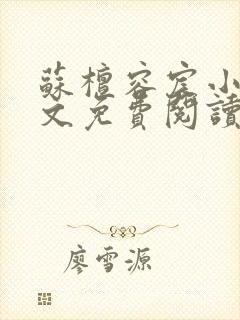 蘇檀容宸小
文免費閱讀
廖雪源